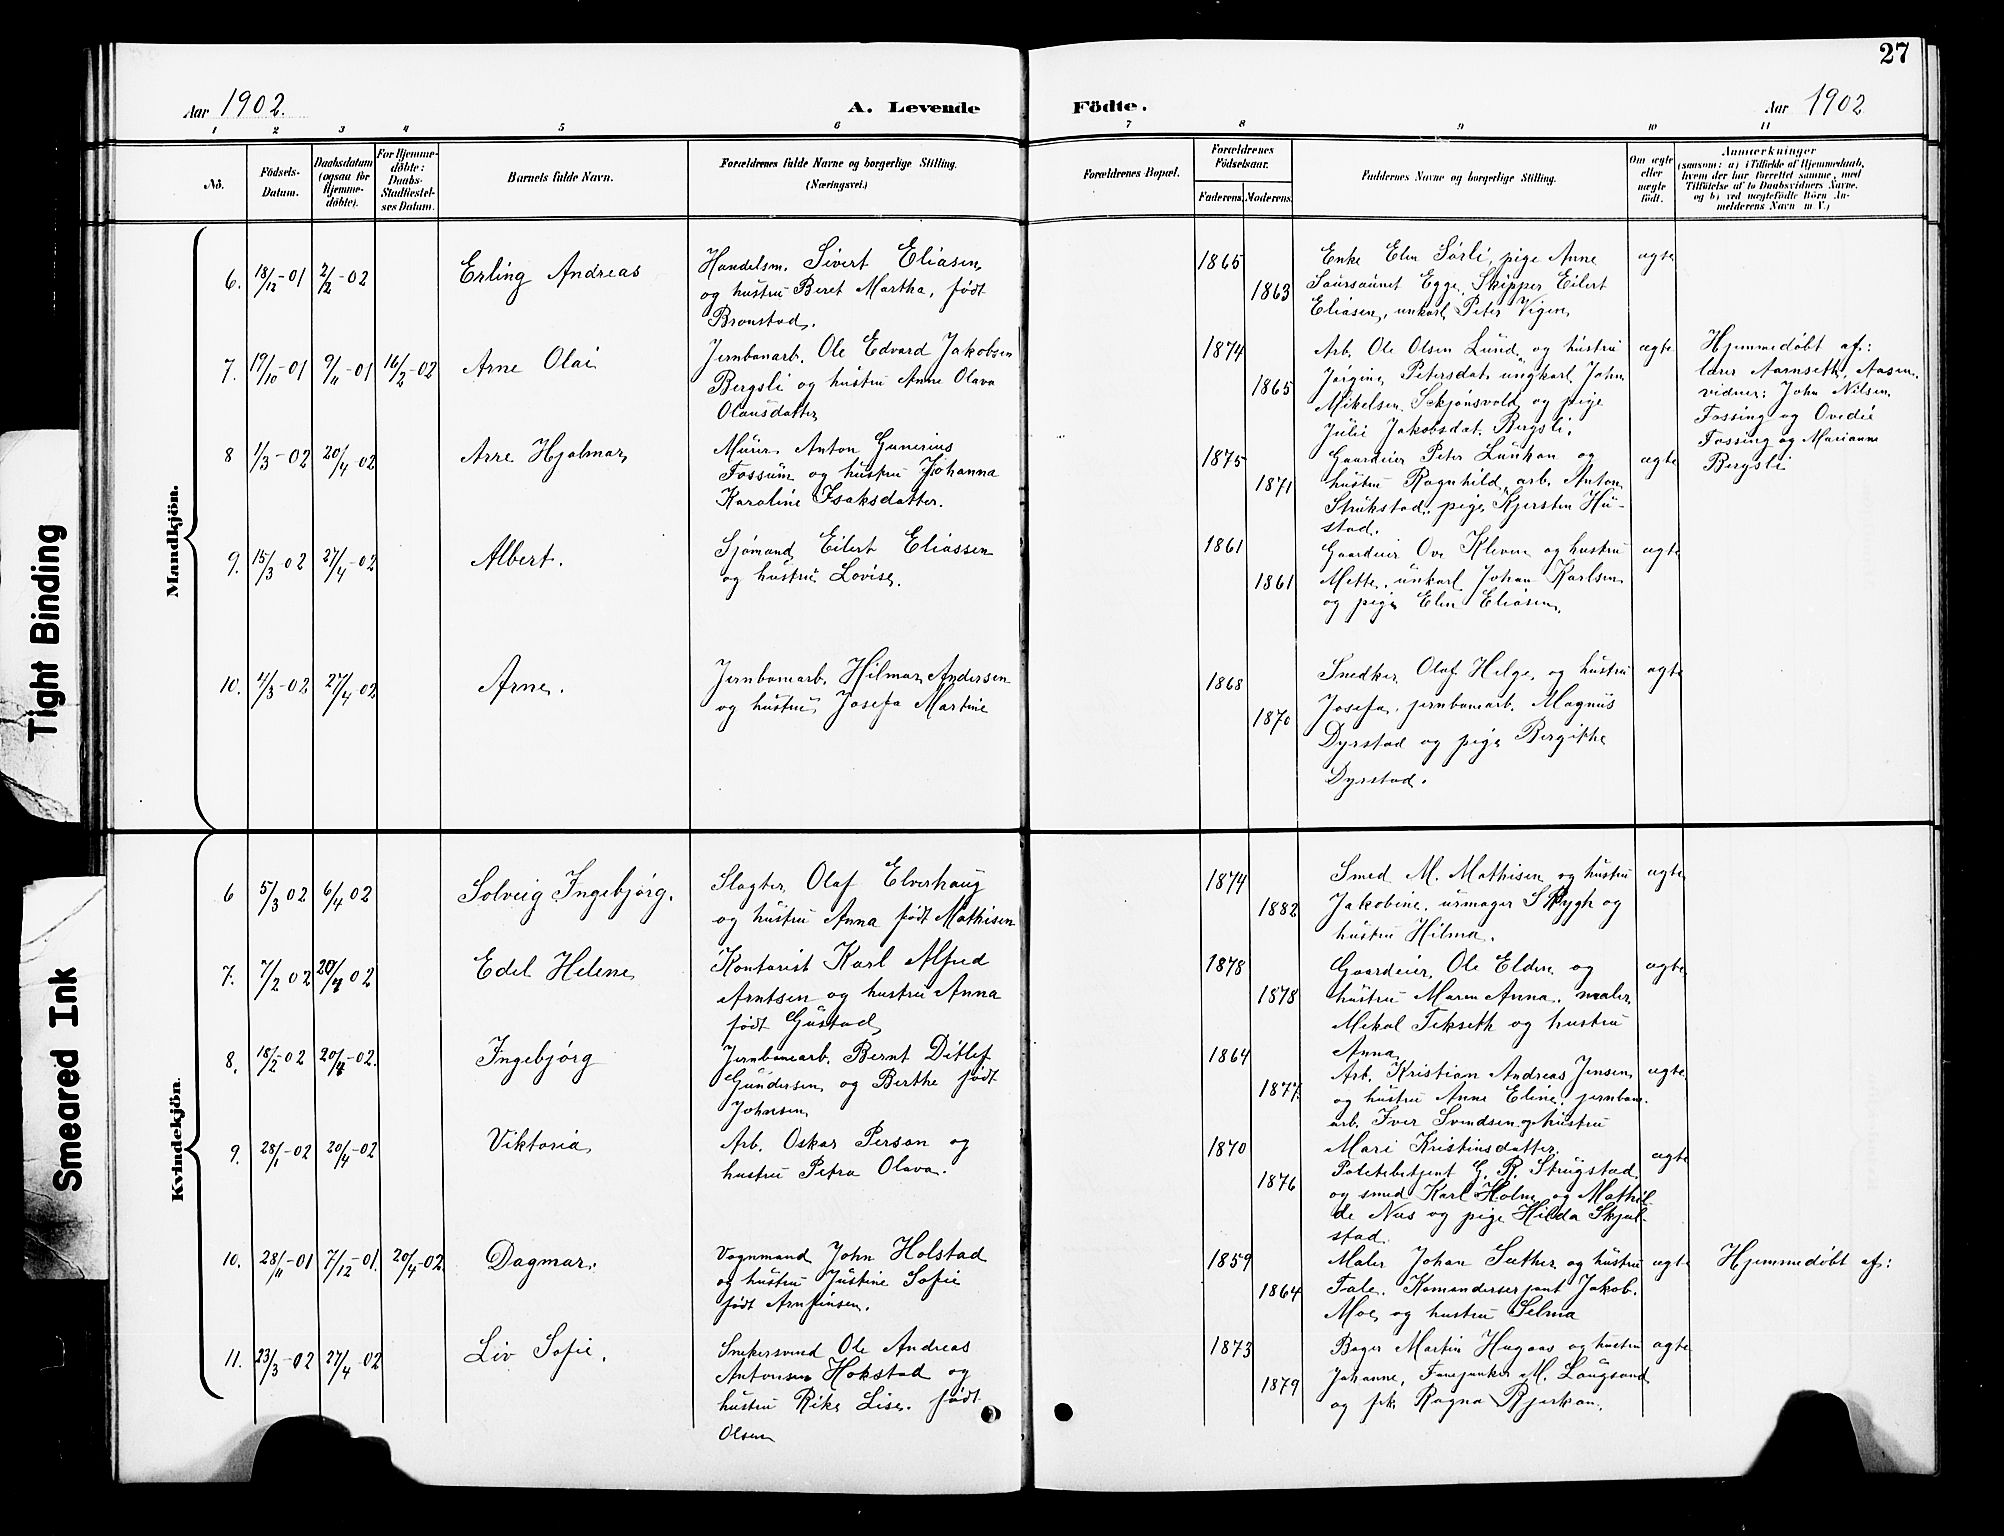 27
Aar 1902.
A. Levende
Födte.
Aar 1902
1 2 3 4 5 6 7 8 9 10 11
Nö.
Födsels-
Datum.
Daabsdatum
(ogsaa for
Hjemme-
döbte).
For Hjemme-
döbte:
Daabs-
Stadfæstel-
ses Datum.
Barnets fulde Navn.
Forældrenes fulde Navne og borgerlige Stilling.
(Næringsvei.)
Forældrenes Bopæl.
Forældrenes
Födselsaar.
Faderens.
Moderens.
Faddernes Navne og borgerlige Stilling.
Om ægte
eller
uægte
født.
Anmærkninger
(saasom: a) i Tilfælde af Hjemmedaab,
hvem der har forrettet samme, med
Tilføielse af to Daabsvidners Navne,
og b) ved uægtefödte Börn An-
melderens Navn m. V.)
Mandkjön.
6. 18/12-01 2/2-02 Erling Andreas
Handelsm. Sivert Eliasen
og hustru Beret Martha, født
Bronstad.
1865
1863
Enke Elen Sørli, pige Anne
Saursaunet Egge, Skipper Eilert
Eliasen, unkarl Peter Vigen
ægte
7. 19/10-01 9/11-01 16/2-02 Arne Olai
Jernbanarb. Ole Edvard Jakobsen
Bergsli og hustru Anne Olava
Olausdatter
1874
1865
Arb. Ole Olsen Lund, og hustru
Jørgine Petersdat. ungkarl John
Mikelsen Skjønsvold og pige
Julie Jakobsdat. Bergsli.
ægte
Hjemmedøbt af:
lærer Aarnseth, Aasen
vidner: John Nilsen
Fossing og Ovedie
Fossing og Marianne
Bergsli
8 1/3-02 20/4-02 Arre Hjalmar
Murer Anton Gunerius
Fossum og hustru Johanna
Karoline Isaksdatter.
1875
1871
Gaardeier Peter Lunkan og
hustru Ragnhild, arb. Anton
Strukstad, pige Kjersten Hu-
stad.
ægte
9. 15/3 02 27/4-02 Albert.
Sjømand Eilert Eliassen
og hustru Lovise.
1861
1861
Gaardeier Ove Kleven og hustru
Mette, unkarl Johan Karlsen
og pige Elen Eliasen
ægte
10. 4/3-02 27/4 02 Arne.
Jernbanarb. Hilmar Andersen
og hustru Josefa Martine
1868
1870
Snedker Olaf Helge, og hustru
Josefa, jernbanarb. Magnus
Dyrstad og pige Bergitte
Dyrstad.
ægte
Kvindekjön.
6 5/3 02 6/4 02 Solveig Ingebjørg.
Slagter Olaf Elverhaug
og hustru Anna født Mathisen
1874
1882
Smed M. Mathisen og hustru
Jakobine, urmager S Rygh og
hustru Hilma.
ægte
7. 7/2 02 20/4 02 Edel Helene
Kontorist Karl Alfred
Arntsen og hustru Anna
født Gustad
1878
1878
Gaardeier Ole Elden og
hustru Maren Anna, maler
Mekal Tekseth og hustru
Anna
ægte
8. 18/2-02 20/4-02. Ingebjørg
Jernbanearb. Bernt Ditlef
Gundersen og Berthe født
Johnsen
1864
1877.
Arb. Kristian Andreas Jensen
og hustru Anne Eline, jernban.
arb. Iver Svendsen og hustru
Mari Kristinsdatter.
ægte
9. 28/1-02 20/4-02 Viktoria
Arb. Oskar Person og
hustru Petra Olava.
1870
1876
Politibetjent G. R. Strugstad
og smed Karl Holm og Mathil-
de Næs og pige Hilda Skjel-
stad.
ægte
10. 28/11-01 7/12-01. 20/4-02. Dagmar.
Vognmand John Holstad
og hustru Justine Sofie
født Arnfinsen.
1859
1864
Maler Johan Suther og hustru
Tale. Komandersersjant Jakob
Moe og hustru Selma
ægte
Hjemmedøbt af:
11. 23/3-02 27/4-02 Liv Sofie.
Snekersvend Ole Andreas
Antonsen Hokstad og
hustru Rike Lise. født
Olsen
1873
1879
Bager Martin Hugaas og hustru
Johanne, Fanejunker M. Laugsand
og frk. Ragna Bjerkan.
ægte
Tight Binding
Smeared Ink